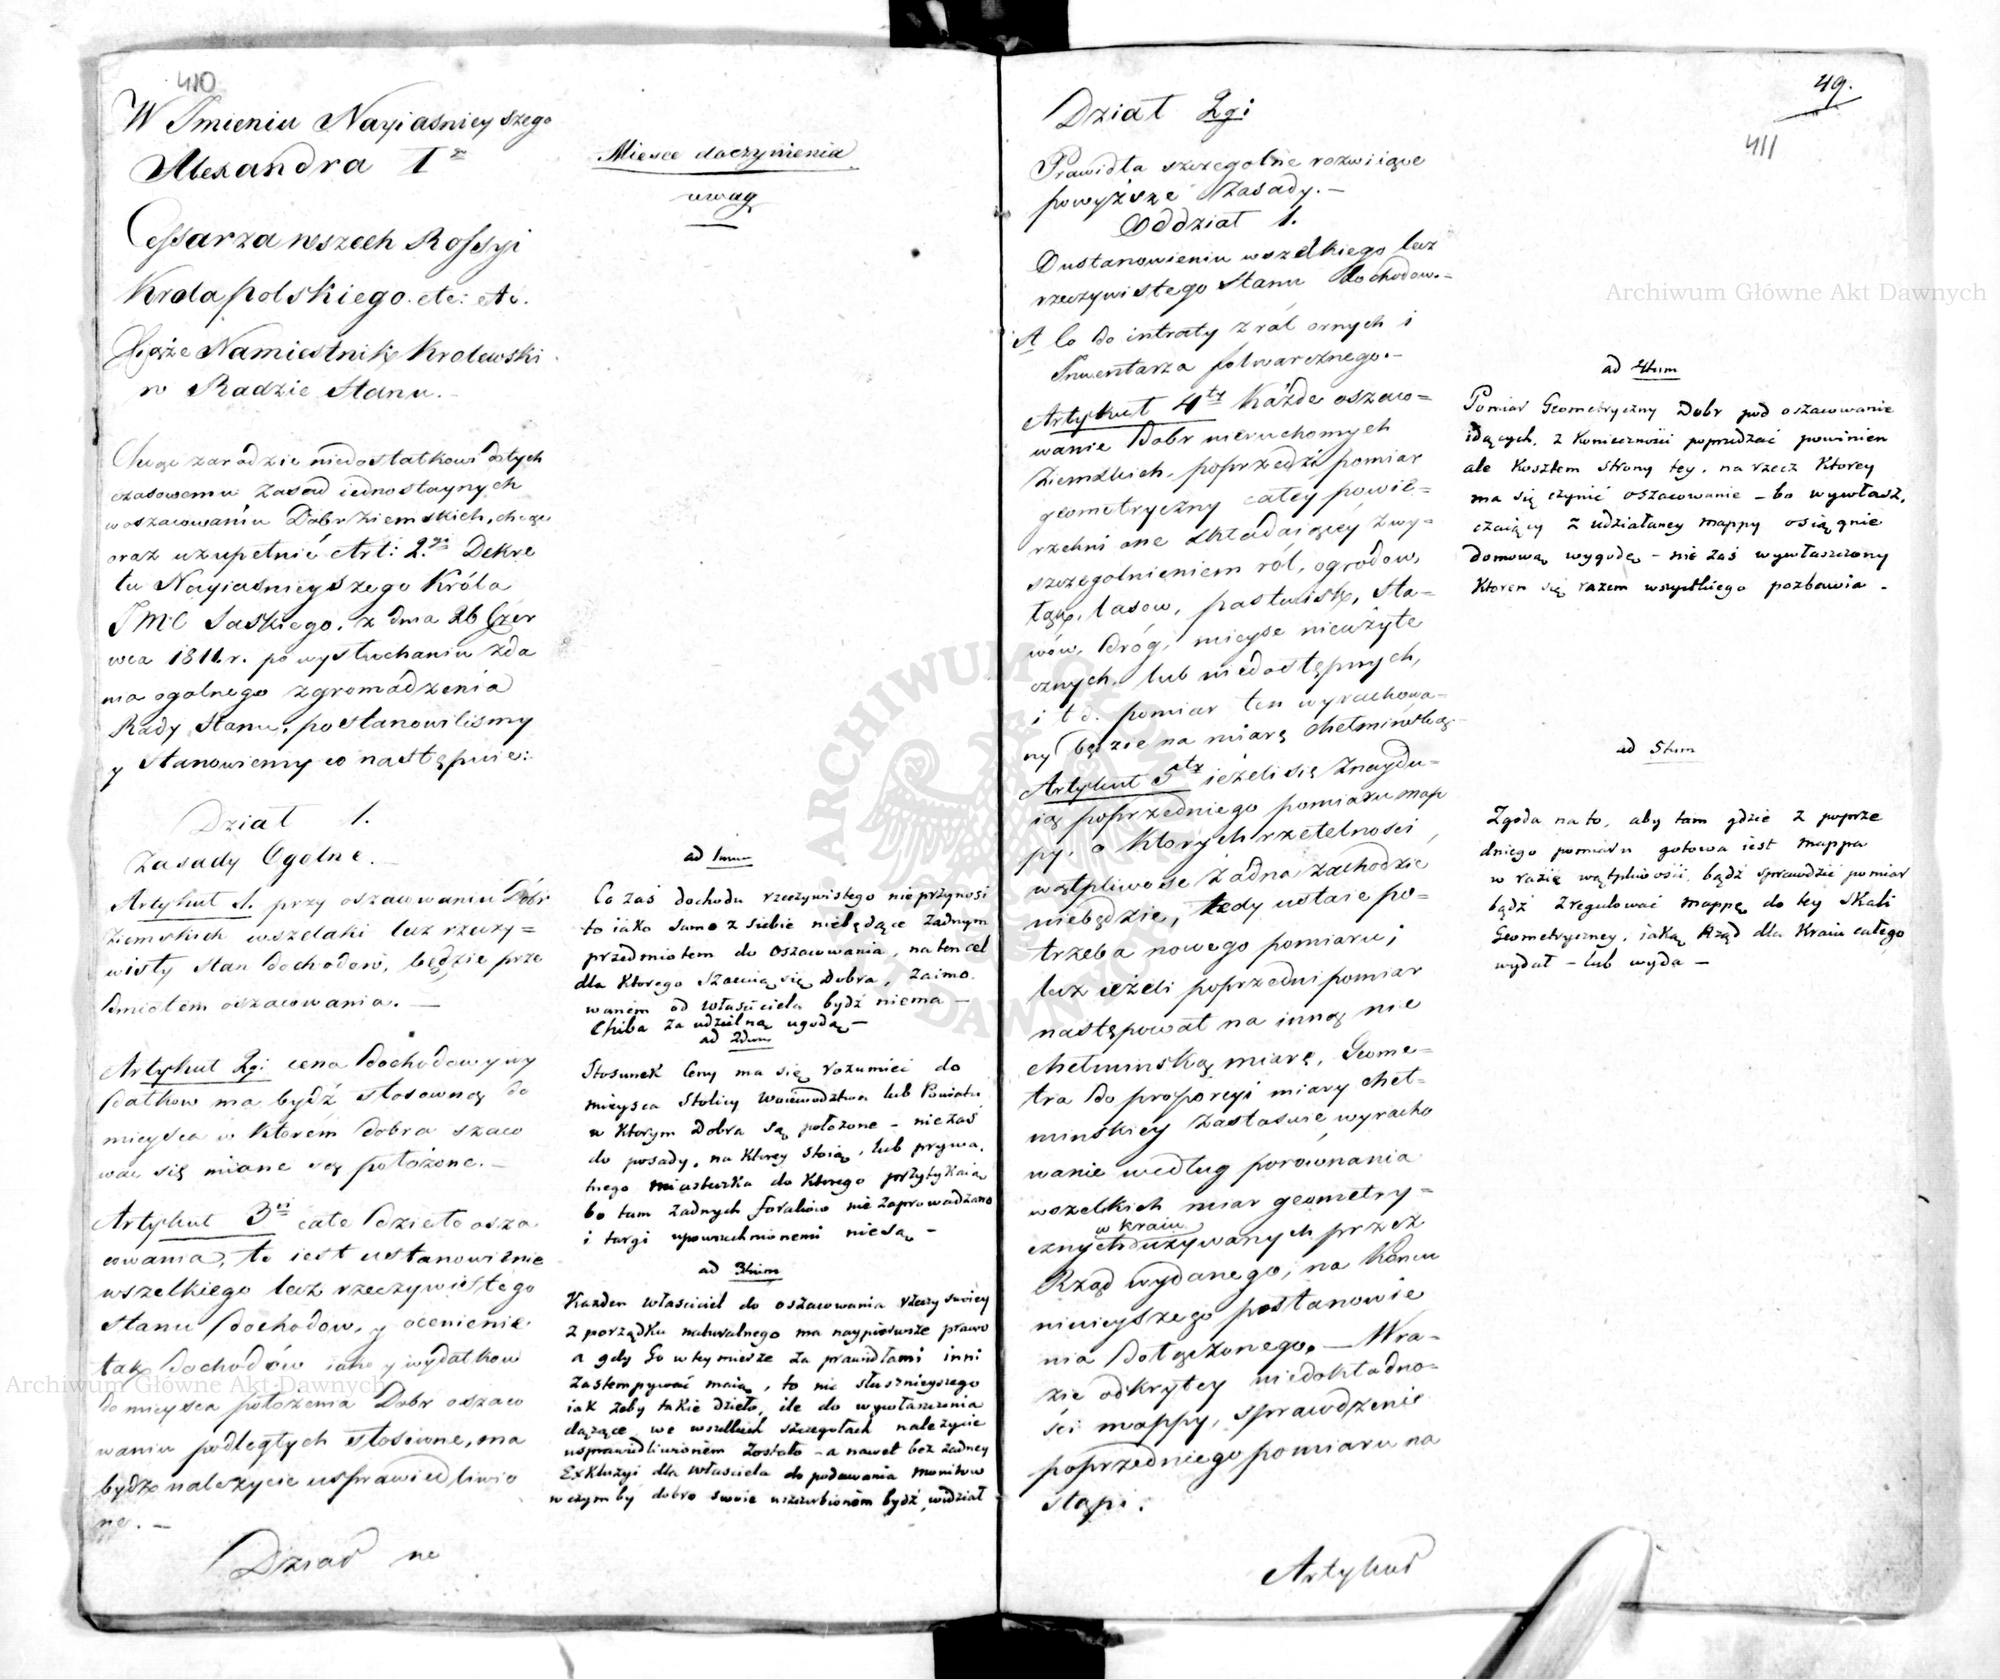 410
W Imieniu Nayiasnieyszego
Alexandra I
Cessarza wszech Rossyi
Krola polskiego. etc: etc.
Xiąże Namiestnik Krolewski
w Radzie Stanu.
Chcąc zaradzić niedostatkowi dotych
czasowemu zasad iednostaynych
w oszacowaniu Dobr Ziemskich, chcąc
oraz uzupełnić Art: 2.gi Dekre
tu Nayiasnieyszego Króla
JMC Saskiego, z dnia 26 Czer
wca 1811.r. po wysłuchaniu zda
nia ogolnego zgromadzenia
Rady Stanu, postanowilismy
y Stanowiemy co następuie:
Dział 1.
Zasady Ogolne.
Artykuł 1. przy oszacowaniu Dóbr
Ziemskich wszelaki lecz rzeczy=
wisty stan dochodow, będzie prze
dmiotem oszacowania. —
Artykuł 2gi cena dochodow y wy
datkow ma bydź stosowną do
mieysca w ktorém dobra szaco
wać się miane są położone. —
Artykuł 3ci całe dzieło osza
cowania, to iest ustanowienie
wszelkiego lecz rzeczywistego
stanu dochodow, y ocenienie
tak dochodów iako y wydatkow
do mieysca położenia Dobr oszaco
waniu podległych stosowne, ma
bydź należycie usprawiedliwio
ne. —
Dział
Miesce do czynienia
uwag
ad 1mum
Co zaś dochodu rzeczywistego nieprzynosi
to iako samo z siebie niebędące żadnym
przedmiotem do oszacowania, na ten cel
dla ktorego szacuią się Dobra, zaimo.
wanem od właściciela bydź niema —
Chiba za udzielną ugodą —
ad 2dum
Stosunek Ceny ma się rozumieć do
mieysca Stolicy Woiewództwa lub Powiatu
w ktorym Dobra są położone — nie zaś
do posady, na ktorey stoią, lub prywa.
tnego miasteczka do ktorego przytykaią
bo tam żadnych foraliów nie zaprowadzono
i targi upowszechnionemi nie są —
ad 3tium
Każden właściciel do oszacowania rzeczy swoiey
z porządku naturalnego ma naypierwsze prawo
a gdy Go w tey mierze za prawidłami inni
zastempywać maią, to nic słusznieyszego
iak żeby takie dzieło, ile do wywłaszczenia
dążące we wszelkich szczegołach należycie
usprawiedliwionem zostało — a nawet bez żadney
Exkluzyi dla właściciela do podawania monitow
w czym by dobro swoie uszczerbionem bydź widział
49.
411
Dział 2gi
Prawidła szczegolne rozwiiące
powyższe Zasady. —
Oddział 1.
O ustanowieniu wszelkiego lecz
rzeczywistego Stanu dochodow. —
A Co do intraty z ról ornych i
Inwentarza folwarcznego. —
Artykuł 4ty Każde oszaco=
wanie Dobr nieruchomych
Ziemskich, poprzedzi pomiar
geometryczny całey powie=
rzchni one składaiącey z wy=
szczegolnieniem ról, ogrodow,
łąk, lasow, pastwisk, sta=
wów, dróg, mieysc nieużyte
cznych, lub niedostępnych,
i t d. pomiar ten wyrachowa=
ny będzie na miarę chełmińską
Artykuł 5ty ieżeli się znaydu=
ią poprzedniego pomiaru map
py, o ktorych rzetelności
wątpliwość żadna zachodzić
niebędzie, tedy ustaie po=
trzeba nowego pomiaru;
lecz ieżeli poprzedni pomiar
następował na inną nie
chełminską miarę, Geome=
tra do proporcyi miary cheł=
minskiey zastosuie wyracho
wanie według porównania
wszelkich miar geometry=
w kraiu
cznych używanych przez
Rząd wydanego, na końcu
ninieyszego postanowie
nia dołączonego. — W ra=
zie odkrytey niedokładno=
ści mappy, sprawdzenie
poprzedniego pomiaru na
stąpi.
Artykuł
ad 4tum
Pomiar Geometryczny Dobr pod oszacowanie
idących, z konieczności poprzedzać powinien
ale kosztem strony tey, na rzecz ktorey
ma się czynić oszacowanie — bo wywłasz.
czaiący z udziałaney mappy osiągnie
domową wygodę — nie zaś wywłaszczony
ktoren się razem wszystkiego pozbawia —
ad 5tum
Zgoda na to, aby tam gdzie z poprze
dniego pomiaru gotowa iest mappa
w razie wątpliwości, bądź sprawdzić pomiar
bądź zregulować mappę do tey skali
Geometryczney, iaką Rząd dla Kraiu całego
wydał — lub wyda —
Archiwum Główne Akt Dawnych
Archiwum Główne Akt Dawnych